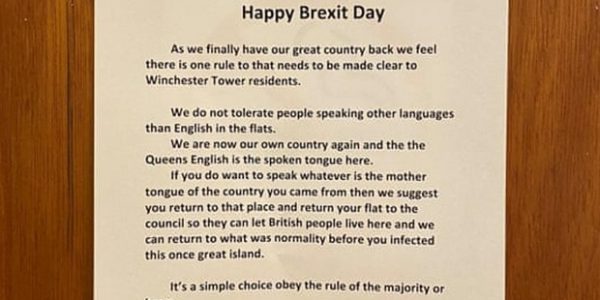 Happy Brexit Day
As we finally have our great country back we feel
there is one rule to that needs to be made clear to
Winchester Tower residents.
We do not tolerate people speaking other languages
than English in the flats.
We are now our own country again and the the
Queens English is the spoken tongue here.
If you do want to speak whatever is the mother
tongue of the country you came from then we suggest
you return to that place and return your flat to the
council so they can let British people live here and we
can return to what was normality before you infected
this once great island.
It's a simple choice obey the rule of the majority or